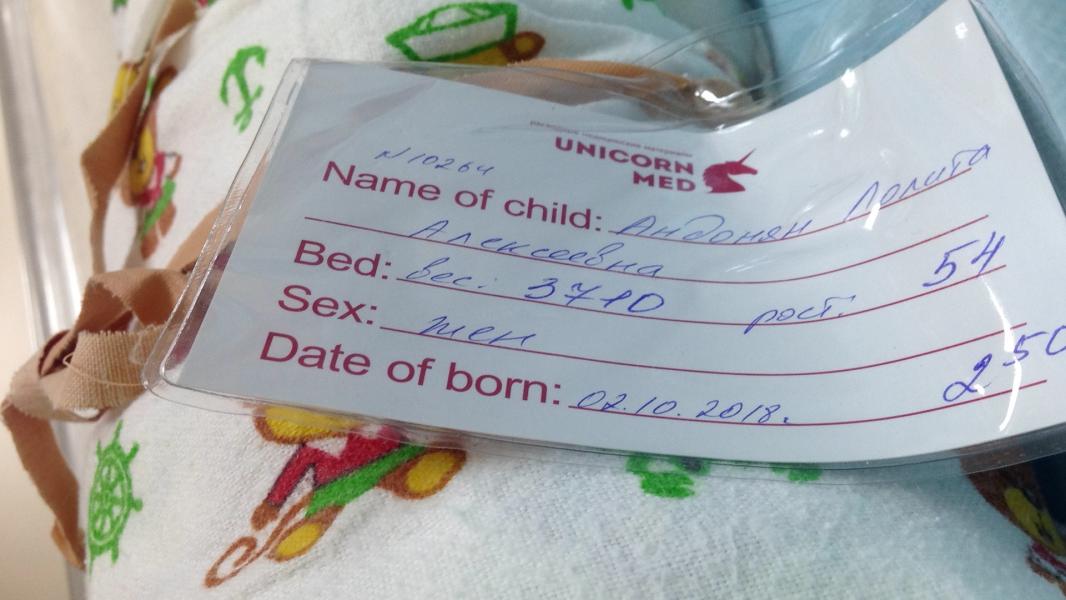 расходные медицинские материалы
UNICORN
MED
N 10264
Name of child: Андонян Лолита
Алексеевна
Bed: вес: 3710 рост: 54
Sex: жен
Date of born: 02.10.2018. 2 50